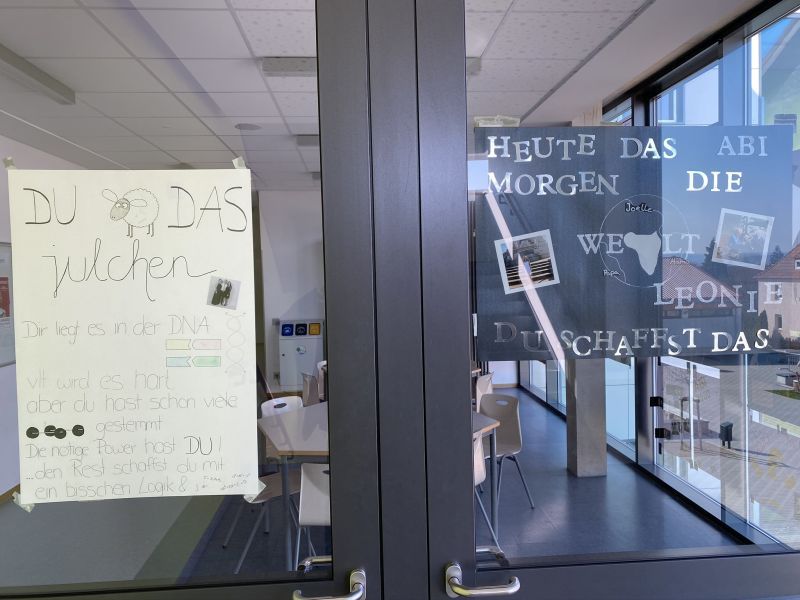 DU DAS
julchen
Dir liegt es in der DNA
vlt wird es hart
aber du hast schon viele
gestemmt
Die nötige Power hast DU!
...den Rest schaffst du mit
ein bisschen Logik &
HEUTE DAS ABI
MORGEN DIE
Joelle
WELT
Mama
Papa
LEONIE
DU SCHAFFST DAS